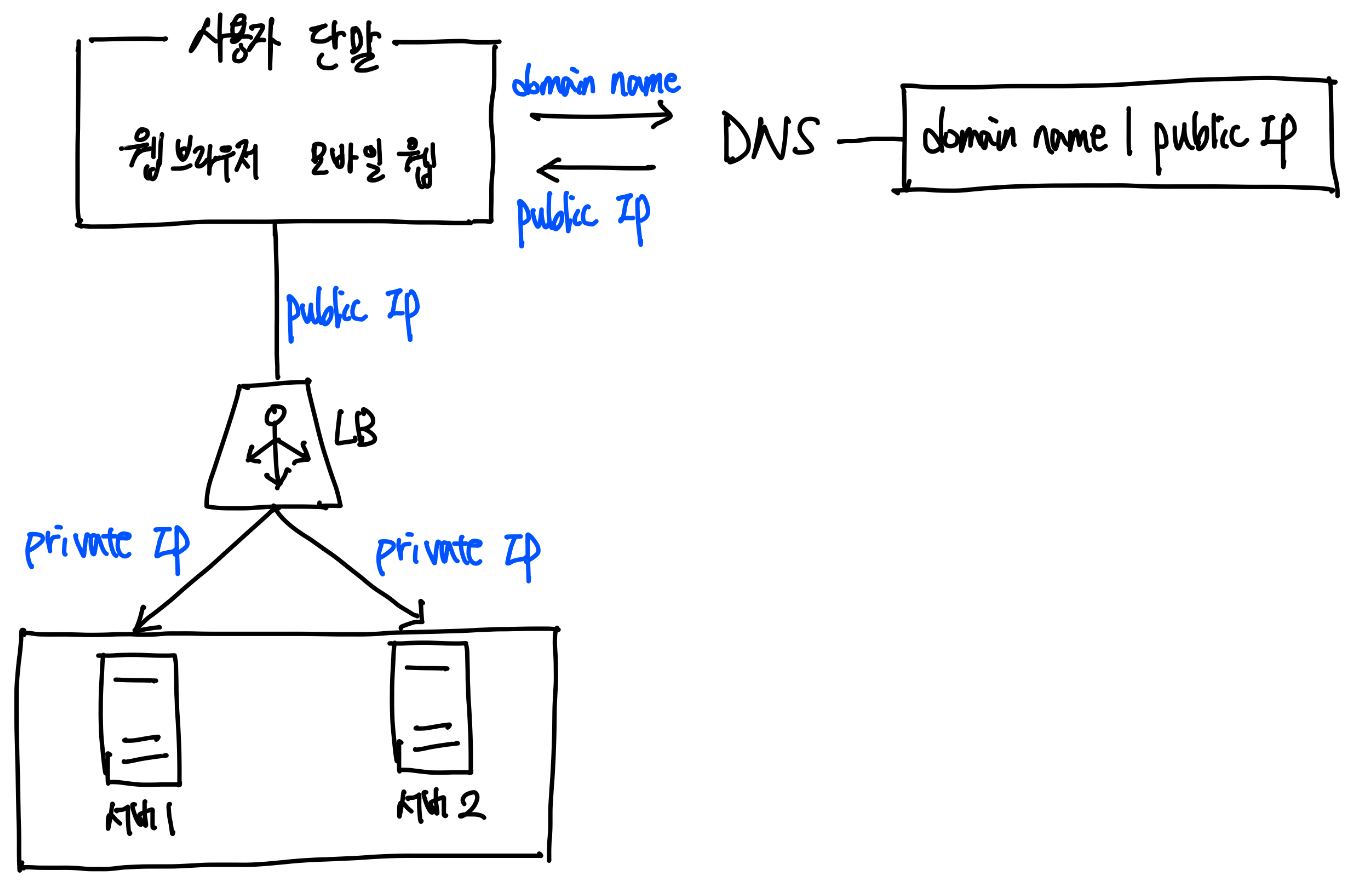 사용자 단말
웹브라우저 모바일 웹
domain name
public IP
DNS
domain name | public IP
public IP
LB
private IP
private IP
서버1
서버2